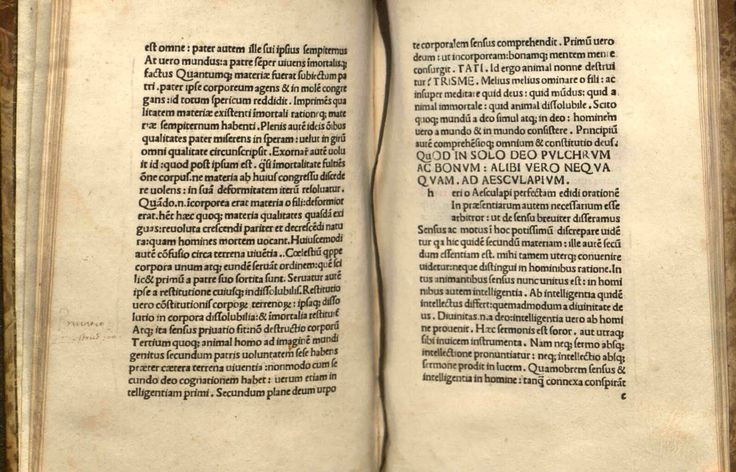 est omne : pater autem ille sui ipsius sempiternus
At uero mundus : a patre sēper uiuens īmortalisq;
factus Quantumq; materiæ fuerat subiectum pa
tri . pater ipse corporeum agens & in molē congre
gans : id totum spericum reddidit . Imprimēs qua
litatem materiæ existenti īmortali rationēq; mate
riæ sempiternum habenti . Plenis autē ideis oībus
qualitates pater miserens in speram : uelut in girū
omni qualitate circunscripsit . Exornař autē uolu
it id : quod post ipsum est .
one corpus . ne materia ab huius congressu discede
re uolens : in suā deformitatem iterū resoluatur .
Quādo .n. īcorporea erat materia o fili : deformior
erat . hēt hæc quoq; materia qualitates quasdā exi
guas : reuoluta crescendi pariter et decrescēdi natu
ra : quam homines mortem uocant . Huiuscemodi
autē cōfusio circa terrena uiuētia .. Cœlestiū qppe
corpora unum atq; eundē seruāt ordinem : quē sci
lic& primū a patre suo sortita sunt . Seruatur autē
ipse a restitutione cuiusq; indissolubilis . Restitutio
uero cōstitutionis corpoꝝ terrenoꝝ : ipsaq; disso
lutio in corpora dissolubilia : & īmortalia restituit̄
Atq; ita sensus priuatio fit : nō destructio corporū
Tertium quoq; animal homo ad imaginē mundi
genitus secundum patris uoluntatem sese habens
præter cætera terrena uiuentia : nonmodo cum se
cundo deo cognationem habet : uerum etiam in
telligentiam primi . Secundum plane deum utpo
te corporalem sensus comprehendit . Primū uero
deum : ut incorpoream : bonamq; mentem mente
consurgit . TATI . Id ergo animal nonne destrui
tur ? TRISME . Melius melius ominare o fili : ac
insuper meditare quid deus : quid mūdus : quid a
nimal immortale : quid animal dissolubile . Scito
quoq; mundū a deo simul atq; in deo : hominem
uero a mundo & in mundo consistere . Principiū
autē comprehēsioq; omnium & constitutio deus .
QuOD IN SOLO DEO PVLCHRVM
AC BONVM : ALIBI VERO NEQVA
QVAM . AD AESCVLAPIVM .
h eri o Aesculapi perfectam edidi orationē
In præsentiarum autem necessarium esse
arbitror : ut de sensu breuiter disseramus
Sensus ac motus : hoc potissimū discrepare uidē
tur q̄ hic quidē secundū materiam : ille autē secū
dum essentiam est . mihi tamem uterq; conuenire
uidetur : neque distingui in hominibus ratione . In
tus animantibus sensus nunc unitus est : in homi
nibus autem intelligentia . Ab intelligentia quidē
intellectus differt : quemadmodum a diuinitate de
us . Diuinitas .n. a deo : intelligentia uero ab homi
ne prouenit . Hæc sermonis est soror . aut utraq;
sibi inuicem instrumenta . Nam neq; sermo absq;
intellectione pronuntiatur : neq; intellectio absq;
sermone prodit in lucem . Quamobrem sensus &
intelligentia in homine : tanq̄ connexa conspirāt
c